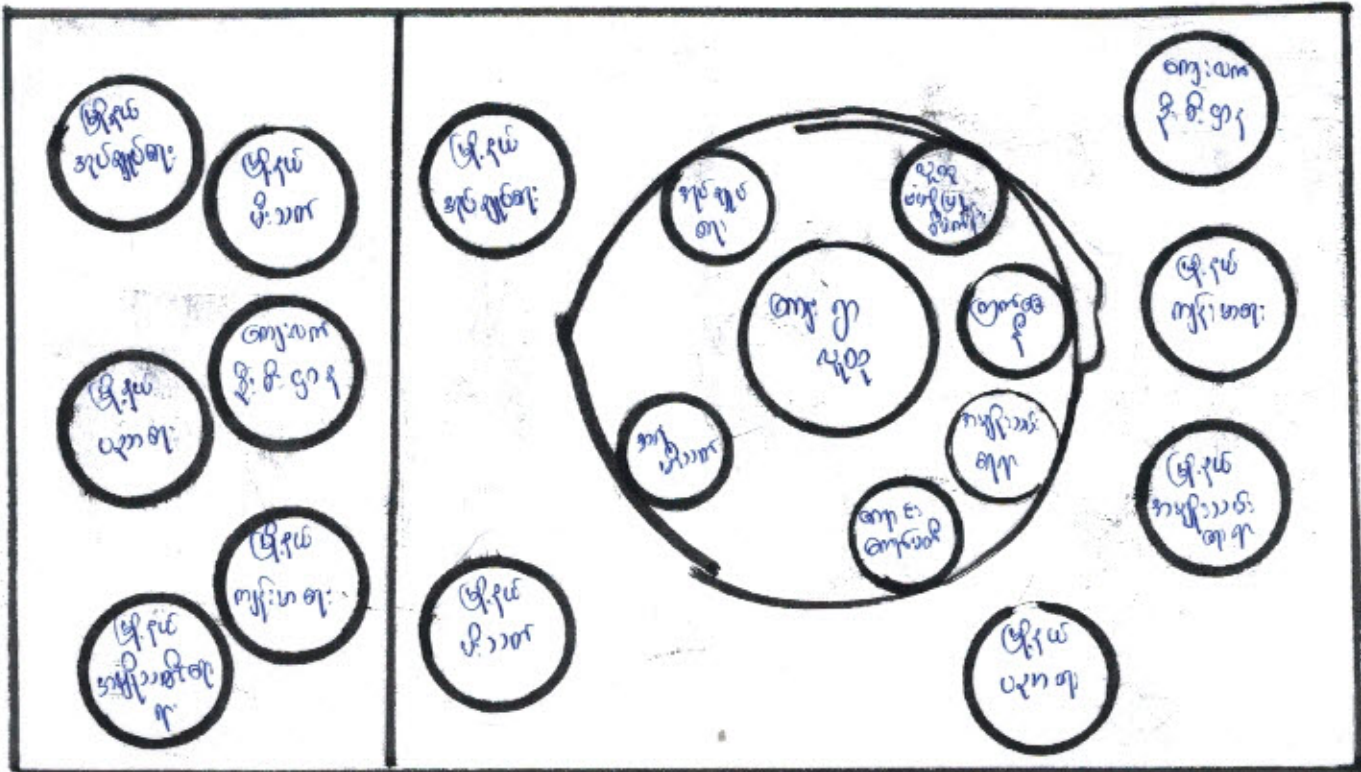 မြို့နယ်
အုပ်ချုပ်ရေး
မြို့နယ်
မီးသတ်
ကျေးလက်
ဦး စီး ဌာန
မြို့နယ်
ပညာရေး
မြို့နယ်
ကျန်းမာရေး
မြို့နယ်
မြို့နယ်
အုပ်ချုပ်ရေး
မြို့နယ်
မီးသတ်
အုပ်ချုပ်
ရေး
ကျေး ရွာ
လူထု
ကြက်ခြေ
နီ
အမျိုးသမီး
ရေးရာ
မီးသတ်
ကျေးလက်
ဦး စီး ဌာန
မြို့နယ်
ကျန်းမာရေး
မြို့နယ်
အမျိုးသမီး
ရေးရာ
မြို့နယ်
ပညာရေး